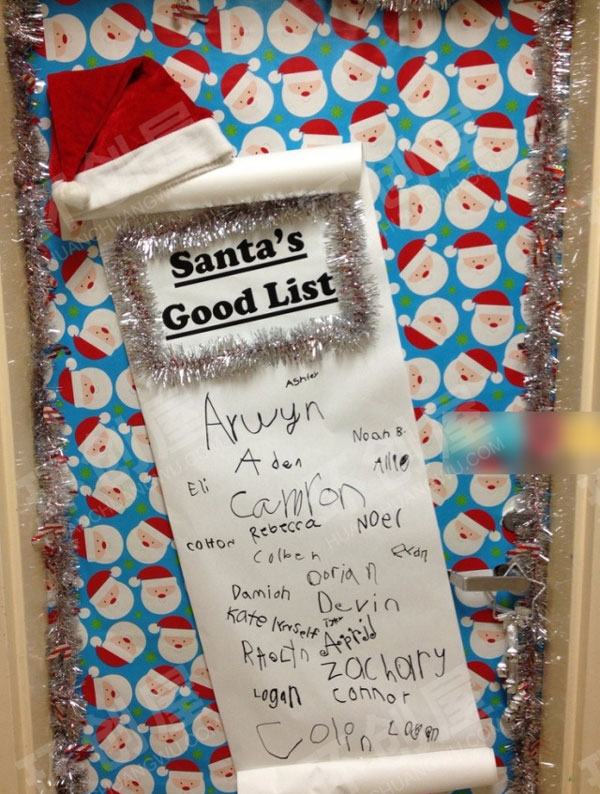 Santa's
Good List
Ashley
Arwyn
Noah B.
Aden
Allie
Eli
Camron
Noel
Rebecca
Colton
Colben
Dorian
Damion
Devin
Kate
April
Zachary
Logan
Connor
Colin
Logan